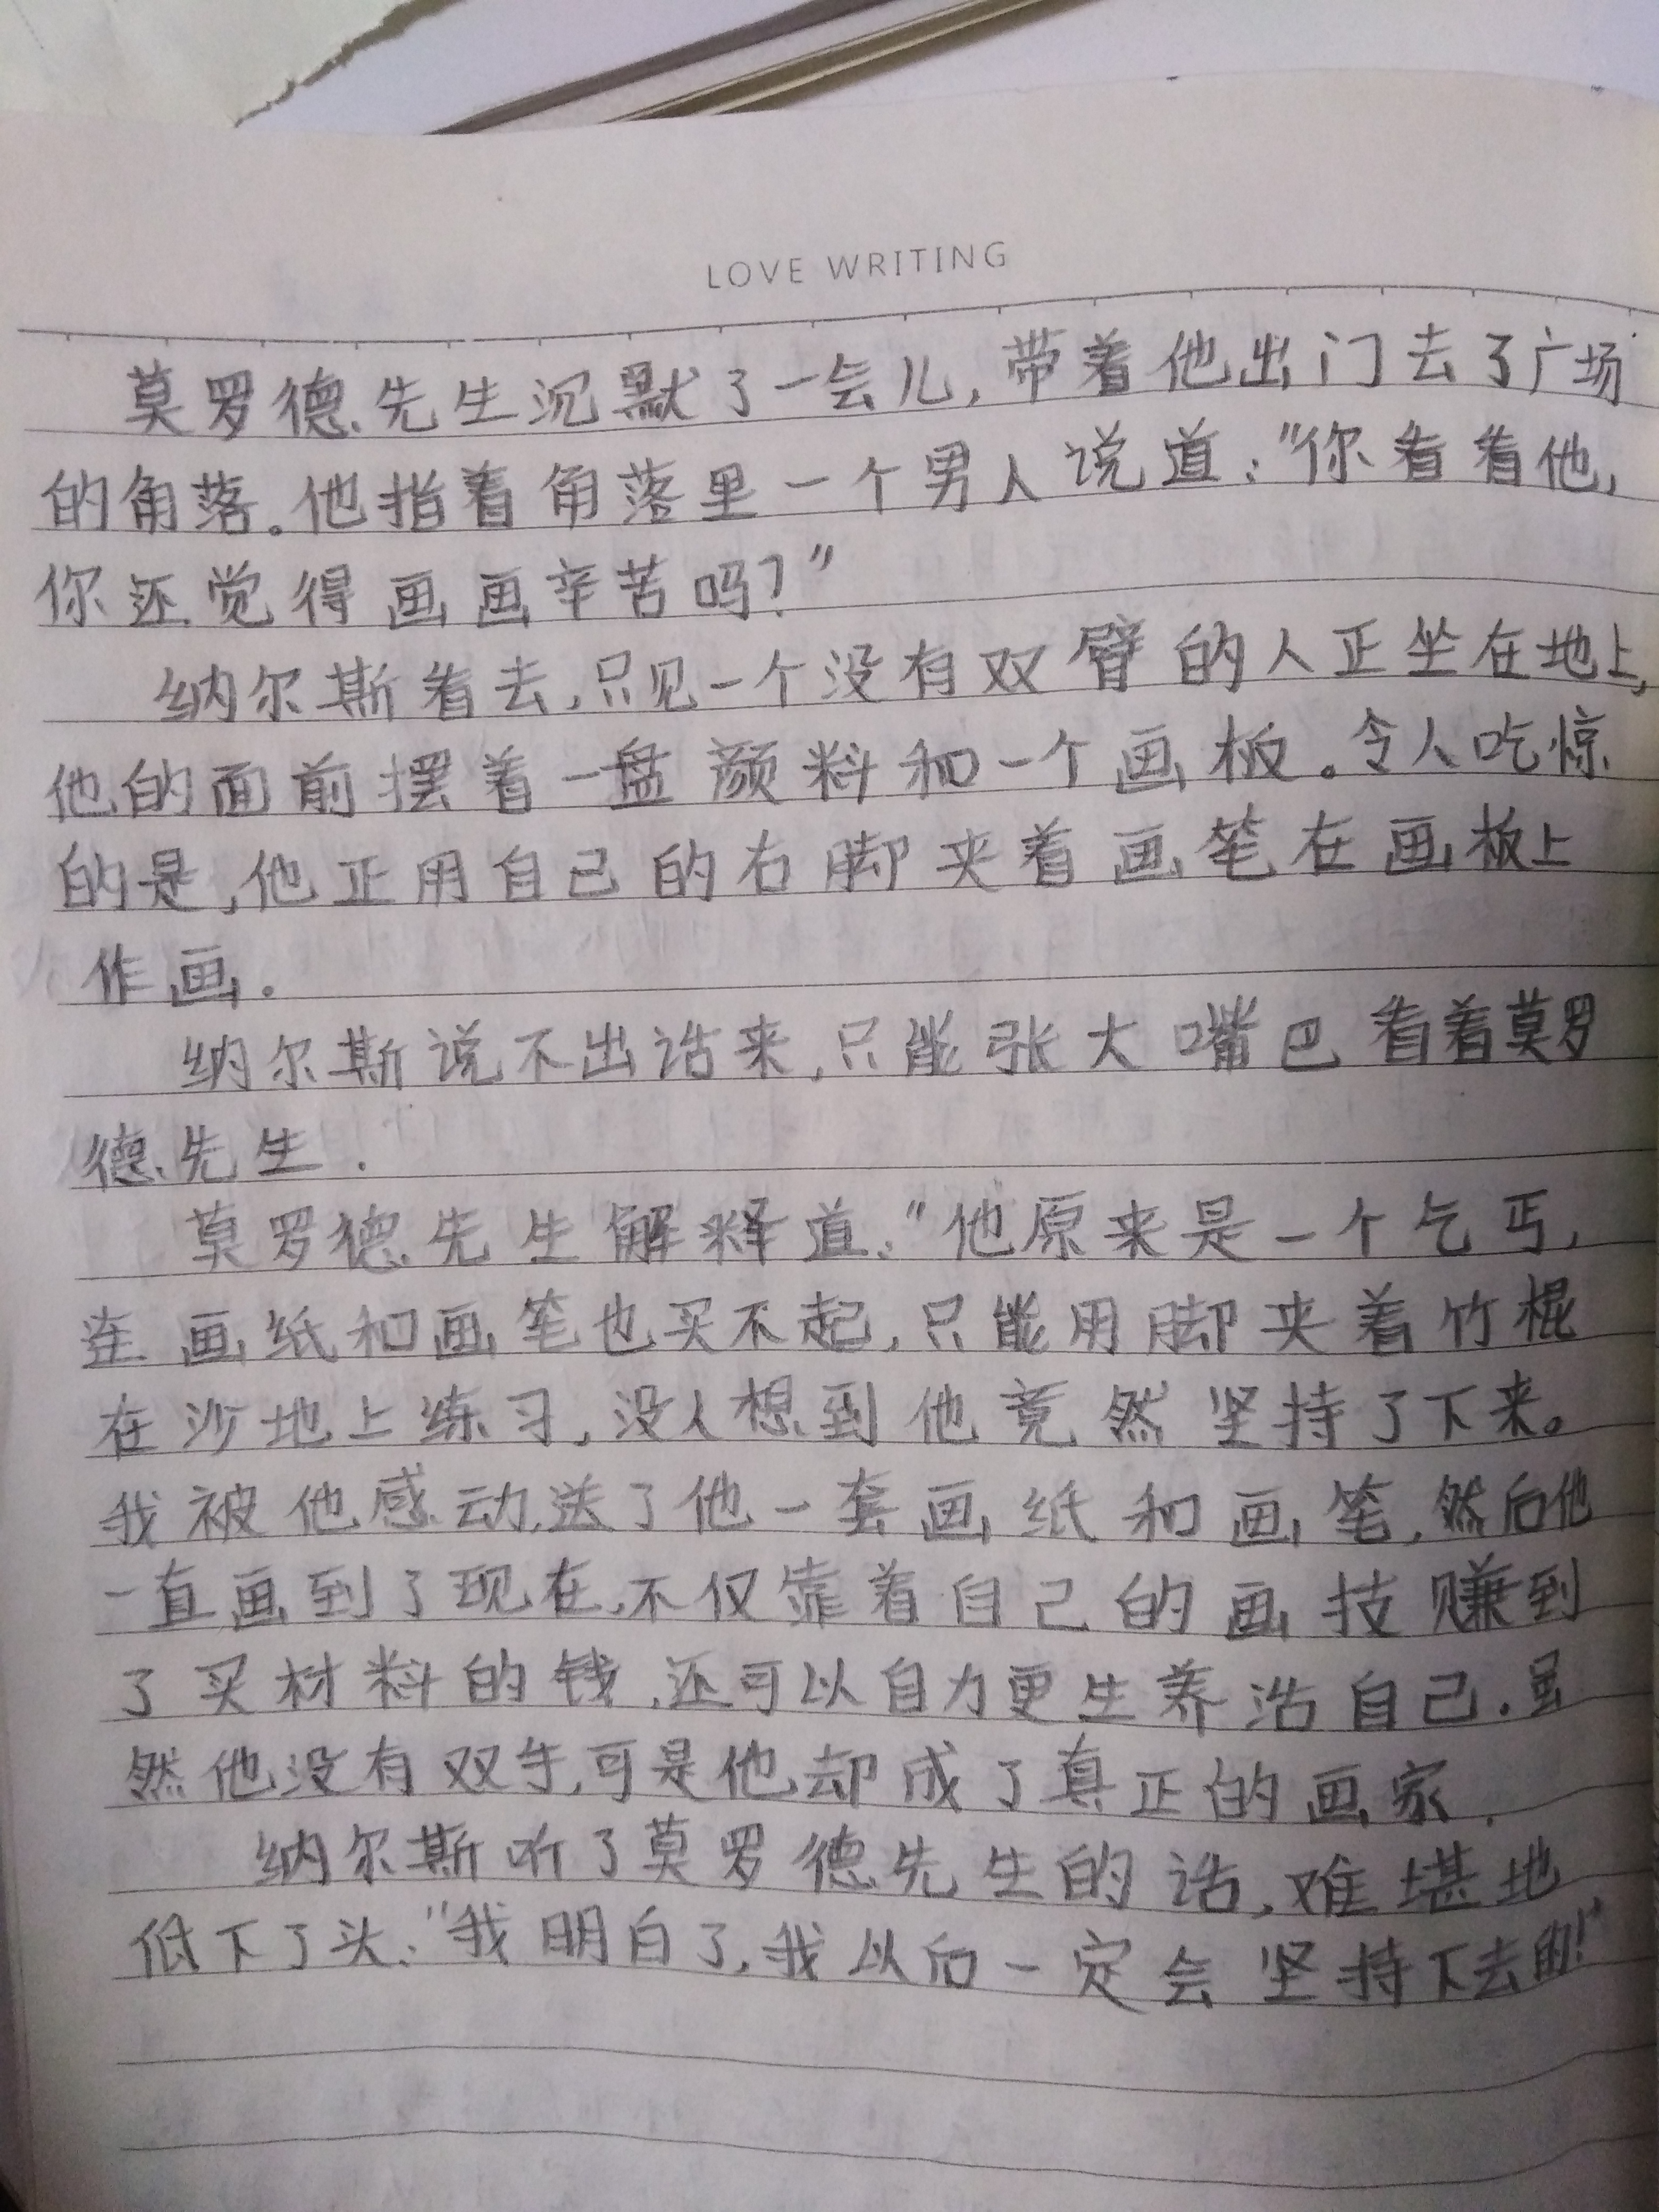 LOVE WRITING
莫罗德先生沉默了一会儿,带着他出门去了广场
的角落。他指着角落里一个男人说道:"你看看他,
你还觉得画画辛苦吗?"
纳尔斯看去,只见一个没有双臂的人正坐在地上,
他的面前摆着一盘颜料和一个画板。令人吃惊
的是,他正用自己的右脚夹着画笔在画板上
作画.
纳尔斯说不出话来,只能张大嘴巴看着莫罗
德先生.
莫罗德先生解释道:"他原来是一个乞丐,
连画纸和画笔也买不起,只能用脚夹着竹棍
在沙地上练习,没人想到他竟然坚持了下来。
我被他感动,送了他一套画纸和画笔,然后他
一直画到了现在,不仅靠着自己的画技赚到
了买材料的钱,还可以自力更生养活自己.虽
然他没有双手,可是他却成了真正的画家.
纳尔斯听了莫罗德先生的话,难堪地
低下了头:"我明白了,我以后一定会坚持下去的!"